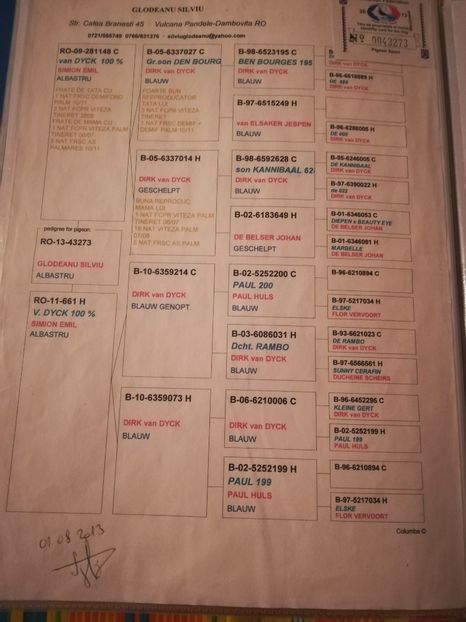 GLODEANU SILVIU
Str. Calea Branesti 45 Vulcana Pandele-Dambovita RO
0721/556749 0766/631376 silviuglodeanu@yahoo.com
Nº 0043273
RO-09-281148 C
van DYCK 100 %
SIMION EMIL
ALBASTRU
FRATE DE TATA CU
1 NAT FRSC DEMIFOND
PALM 10/11
3 NAT FCPR VITEZA
TINERET 2009
FRATE DE MAMA CU
1 NAT FCPR VITEZA PALM
TINERET 06/07
3 NAT FRSC AS
PALMARES 10/11
pedigree for pigeon:
RO-13-43273
GLODEANU SILVIU
ALBASTRU
RO-11-661 H
V. DYCK 100 %
SIMION EMIL
ALBASTRU
B-05-6337027 C
Gr.son DEN BOURG
DIRK van DYCK
BLAUW
FOARTE BUN
REPRODUCATOR
TATA LUI
3 NAT FCPR VITEZA
TINERET
1 NAT FRSC DEMIF +
DEMIF PALM 10/11
B-05-6337014 H
DIRK van DYCK
GESCHELPT
BUNA REPRODUC
MAMA LUI
1 NAT FCPR VITEZA PALM
TINERET 06/07
16 NAT VITEZA PALM
07/08
5 NAT FRSC AS PALM
B-10-6359214 C
DIRK van DYCK
BLAUW GENOPT
B-10-6359073 H
DIRK van DYCK
BLAUW
B-98-6523195 C
BEN BOURGES 195
DIRK van DYCK
BLAUW
B-97-6515249 H
van ELSAKER JESPEN
BLAUW
B-98-6592628 C
son KANNIBAAL 62
DIRK van DYCK
BLAUW
B-02-6183649 H
DE BELSER JOHAN
GESCHELPT
B-02-5252200 C
PAUL 200
PAUL HULS
BLAUW
B-03-6086031 H
Dcht. RAMBO
DIRK van DYCK
BLAUW
B-06-6210006 C
DIRK van DYCK
BLAUW
B-02-5252199 H
PAUL 199
PAUL HULS
BLAUW
DIRK van DYCK
DIRK van DYCK
B-96-6286005 H
DIRK van DYCK
B-95-6246005 C
DE KANNIBAAL
DIRK van DYCK
B-97-6390022 H
de 022
DIRK van DYCK
B-01-6346053 C
DIEPEN x BEAUTY EYE
DE BELSER JOHAN
B-01-6346091 H
MARBELLE
DE BELSER JOHAN
B-96-6210894 C
B-97-5217034 H
ELSKE
FLOR VERVOORT
B-93-6621023 C
DE RAMBO
DIRK van DYCK
B-97-6566561 H
SUNNY CERAFIN
DUCHEINE SCHEIRS
B-96-6452295 C
KLEINE GERT
DIRK van DYCK
B-02-5252199 H
PAUL 199
PAUL HULS
B-96-6210894 C
B-97-5217034 H
ELSKE
FLOR VERVOORT
Columba ©
01.08 2013